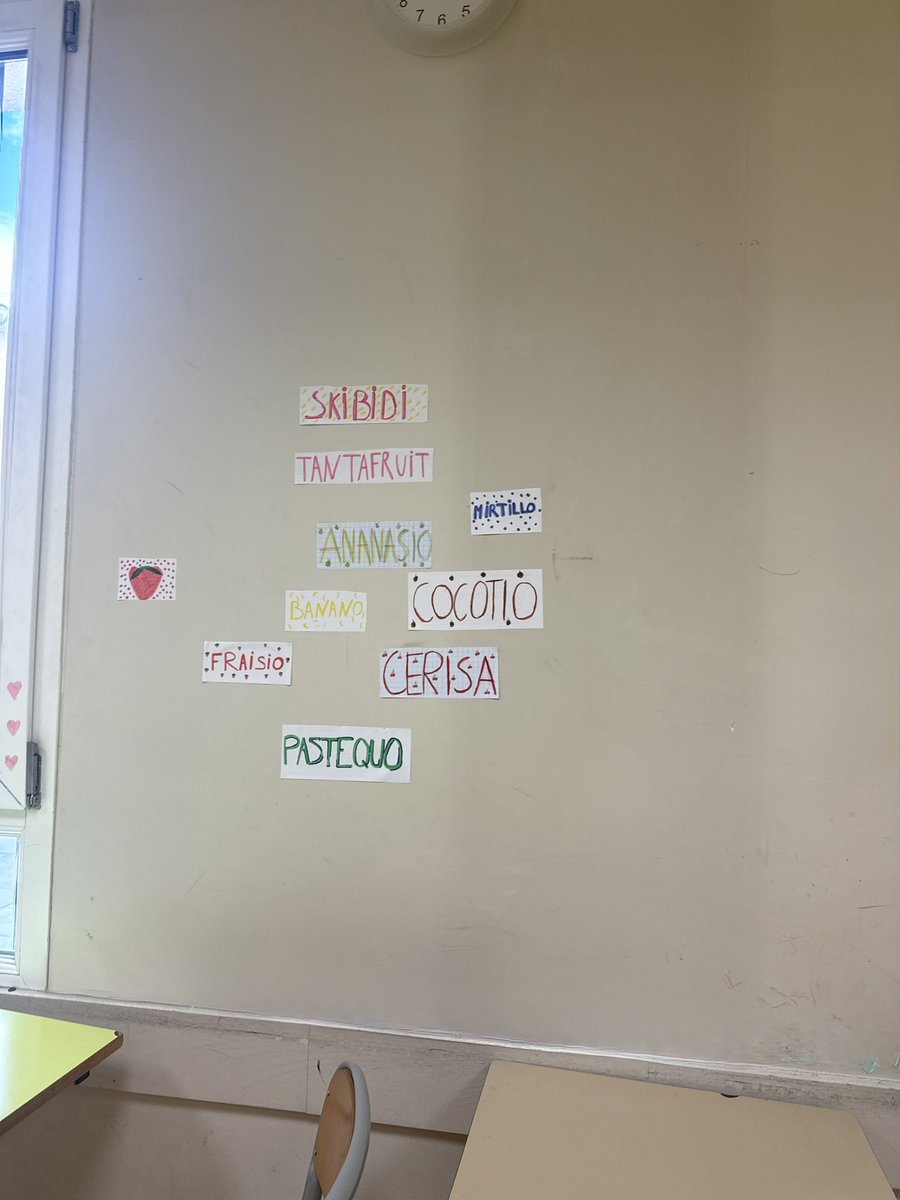 8 7 6 5
SKIBIDI
TANTAFRUIT
MIRTILLO
ANANASIO
COCOTIO
BANANO
FRAISIO
CERISA
PASTEQUO